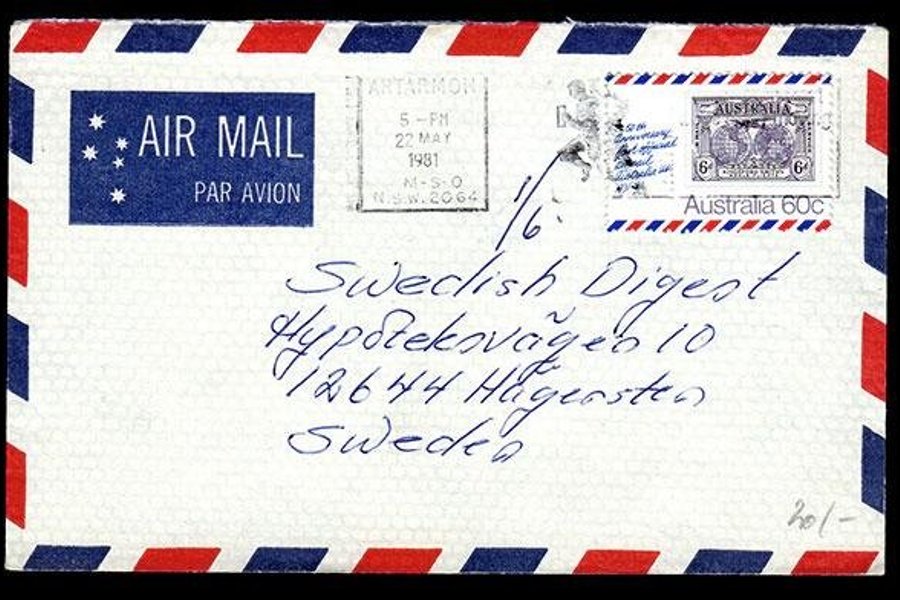 AIR MAIL
PAR AVION
ARTARMON
5-PM
22 MAY
1981
M-S-O
N.S.W. 2064
50th
Anniversary
official
AUSTRALIA
6D
6D
Australia 60c
1/6
Swedish Digest
Hypoteksvägen 10
12644 Hägersten
Sweden
20/-